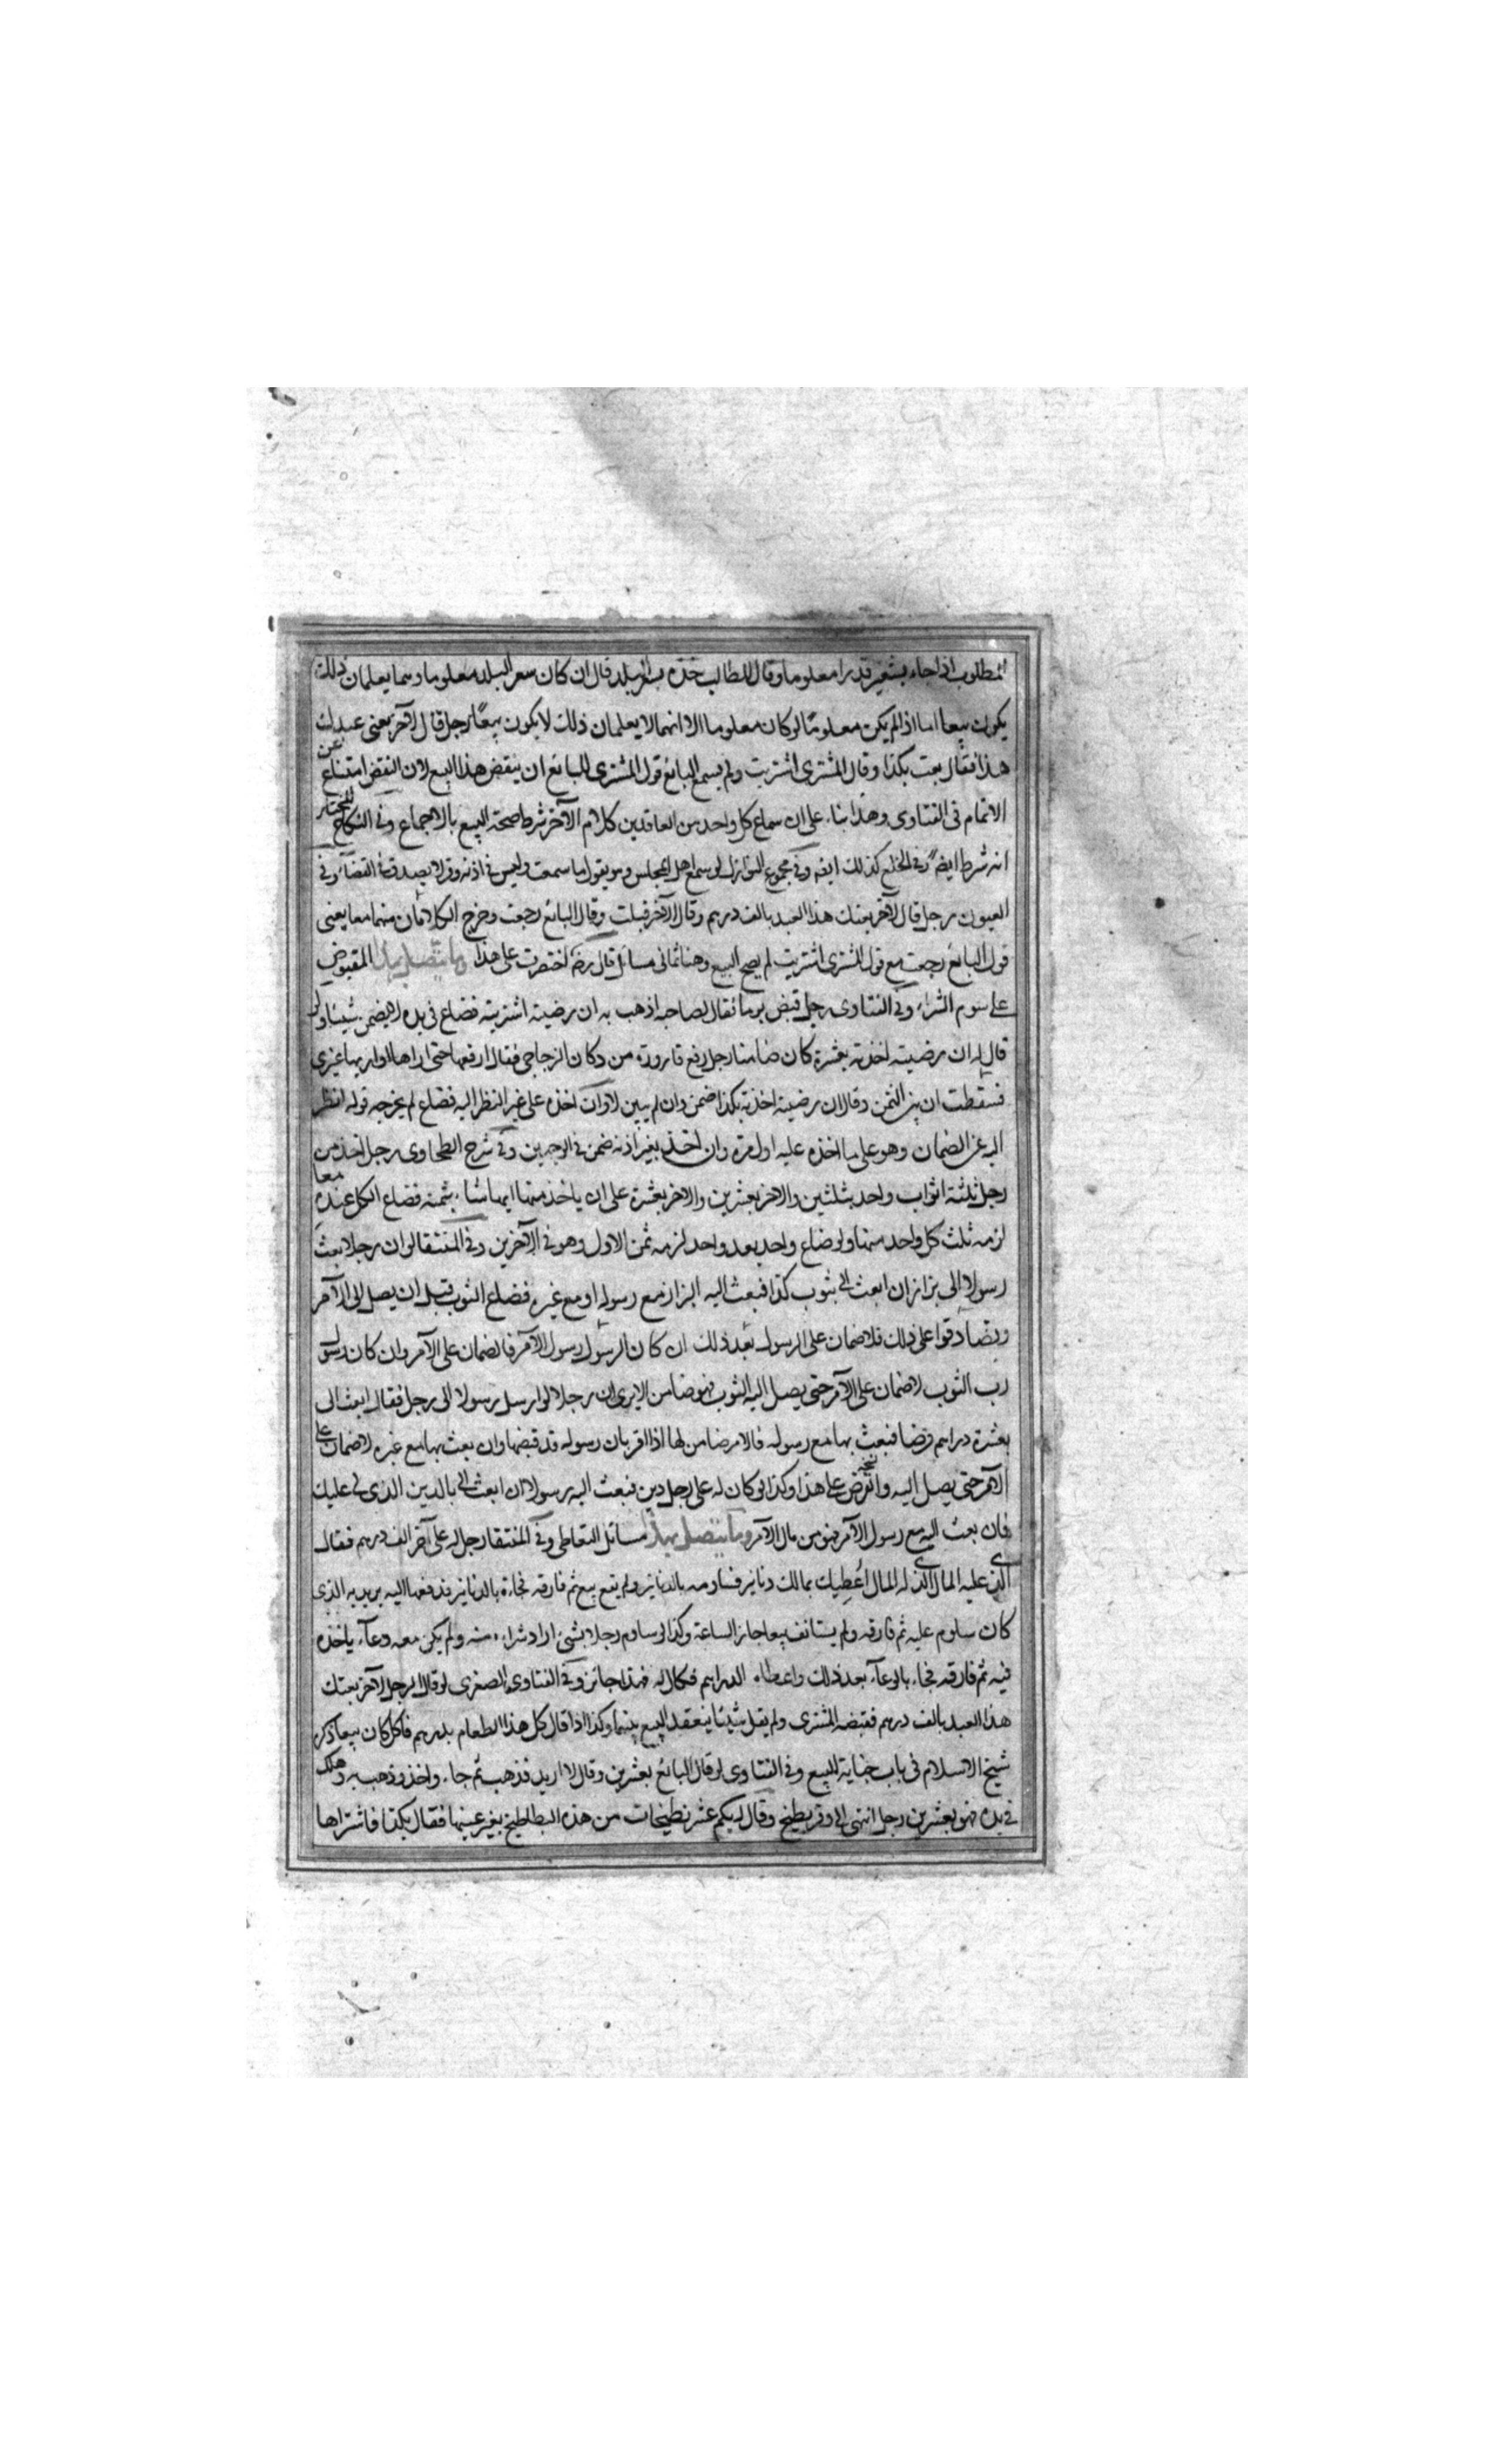 المطلوب اذا جاء بشعير قدرا معلوما وقال للطالب خذه بسعر البلد قال ان كان سعر البلد معلوما وهما يعلمان ذلك
يكون بيعا اما اذا لم يكن معلوما او كان معلوما الا انهما لا يعلمان ذلك لا يكون بيعا رجل قال لآخر بعنى عبدك
هذا فقال بعت بكذا وقال المشترى اشتريت ولم يسمع البائع قول المشترى للبائع ان ينقض هذا البيع لان النقض امتناع عن
الاتمام فى الفتاوى وهذا بناء على ان سماع كل واحد من العاقدين كلام الآخر شرط لصحة البيع بالاجماع وفى النكاح المختار
انه شرط ايضا وفى الخلع كذلك ايضا وفى مجموع النوازل لو سمع اهل المجلس وهو يقول ما سمعت وليس فى اذنه وقر لا يصدقه القضاء وفى
العيون رجل قال لآخر بعتك هذا العبد بالف درهم وقال الآخر قبلت وقال البائع رجعت وخرج الكلامان منهما معا يعنى
قول البائع رجعت مع قول المشترى اشتريت لم يصح البيع وهنا ثمانى مسائل قال رضه اختصرت على هذا وما يتصل بهذا المقبوض
على سوم الشراء وفى الفتاوى رجل قبض فقال لصاحبه اذهب به ان رضيته اشتريته فضاع فى يده لا يضمن شيئا ولو
قال له ان رضيته اخذته بعشرة كان ضامنا رجل رفع قارورة من دكان الزجاجى فقال ارفعها حتى اراها او اريها غيرى
فسقطت ان بين الثمن وقال ان رضيته اخذته بكذا ضمن وان لم يبين لا وان اخذه على غير النظر اليه فضاع لم يخرجه قوله انظر
اليه عن الضمان وهو على ما اخذه عليه اول مرة وان اخذ بغير اذنه ضمن فى الوجهين وفى شرح الطحاوى رجل اخذ من
رجل ثلثة اثواب واحد بثلثين والآخر بعشرين والآخر بعشرة على ان ياخذ منها ايها شاء بثمنه فضاع الكل عنده معا
لزمه ثلث كل واحد منها ولو ضاع واحد بعد واحد لزمه ثمن الاول وهو فى الآخرين وفى المنتقى لو ان رجلا بعث
رسولا الى بزاز ان ابعث الى بثوب كذا فبعث اليه البزاز مع رسوله او مع غيره فضاع الثوب قبل ان يصل الى الآمر
وتصادقوا على ذلك فلا ضمان على الرسول بعد ذلك ان كان الرسول رسول الآمر فالضمان على الآمر وان كان رسول
رب الثوب لا ضمان على الآمر حتى يصل اليه الثوب فهو ضامن الا يرى ان رجلا لو ارسل رسولا الى رجل فقال ابعث الى
بعشرة دراهم قرضا فبعث بها مع رسوله فالآمر ضامن لها اذا اقر بان رسوله قد قبضها وان بعث بها مع غيره لا ضمان على
الآمر حتى يصل اليه والقرض على هذا وكذا لو كان له على رجل دين فبعث اليه رسولا ان ابعث الى بالدين الذى لى عليك
فان بعث اليه مع رسول الآمر فهو من مال الآمر وما يتصل بهذا مسائل التعاطى وفى المنتقى رجل له على آخر الف درهم فقال
الذى عليه المال للذى له المال اعطيك بمالك دنانير فساومه بالدنانير ولم يقع بيع ثم فارقه فجاءه بالدنانير فدفعها اليه يريد به الذى
كان ساوم عليه ثم فارقه ولم يستانف بيعا جاز الساعة وكذا لو ساوم رجلا بشئ اراد شراءه منه ولم يكن معه وعاء ياخذه
فيه ثم فارقه فجاء بالوعاء بعد ذلك واعطاه الدراهم فكال له فهذا جائز وفى الفتاوى الصغرى لو قال الرجل لآخر بعتك
هذا العبد بالف درهم فقبضه المشترى ولم يقل شيئا ينعقد البيع بينهما وكذا اذا قال كل هذا الطعام بدرهم فاكل كان بيعا ذكره
شيخ الاسلام فى باب جناية البيع وفى الفتاوى لو قال البائع بعشرين وقال لا اريد فذهب ثم جاء واخذ وذهب به وهلك
فى يده فهو بعشرين رجل انتهى الى وقر بطيخ وقال له بكم عشر بطيخات من هذه البطاطيخ بغير عينها فقال بكذا فاشتراها